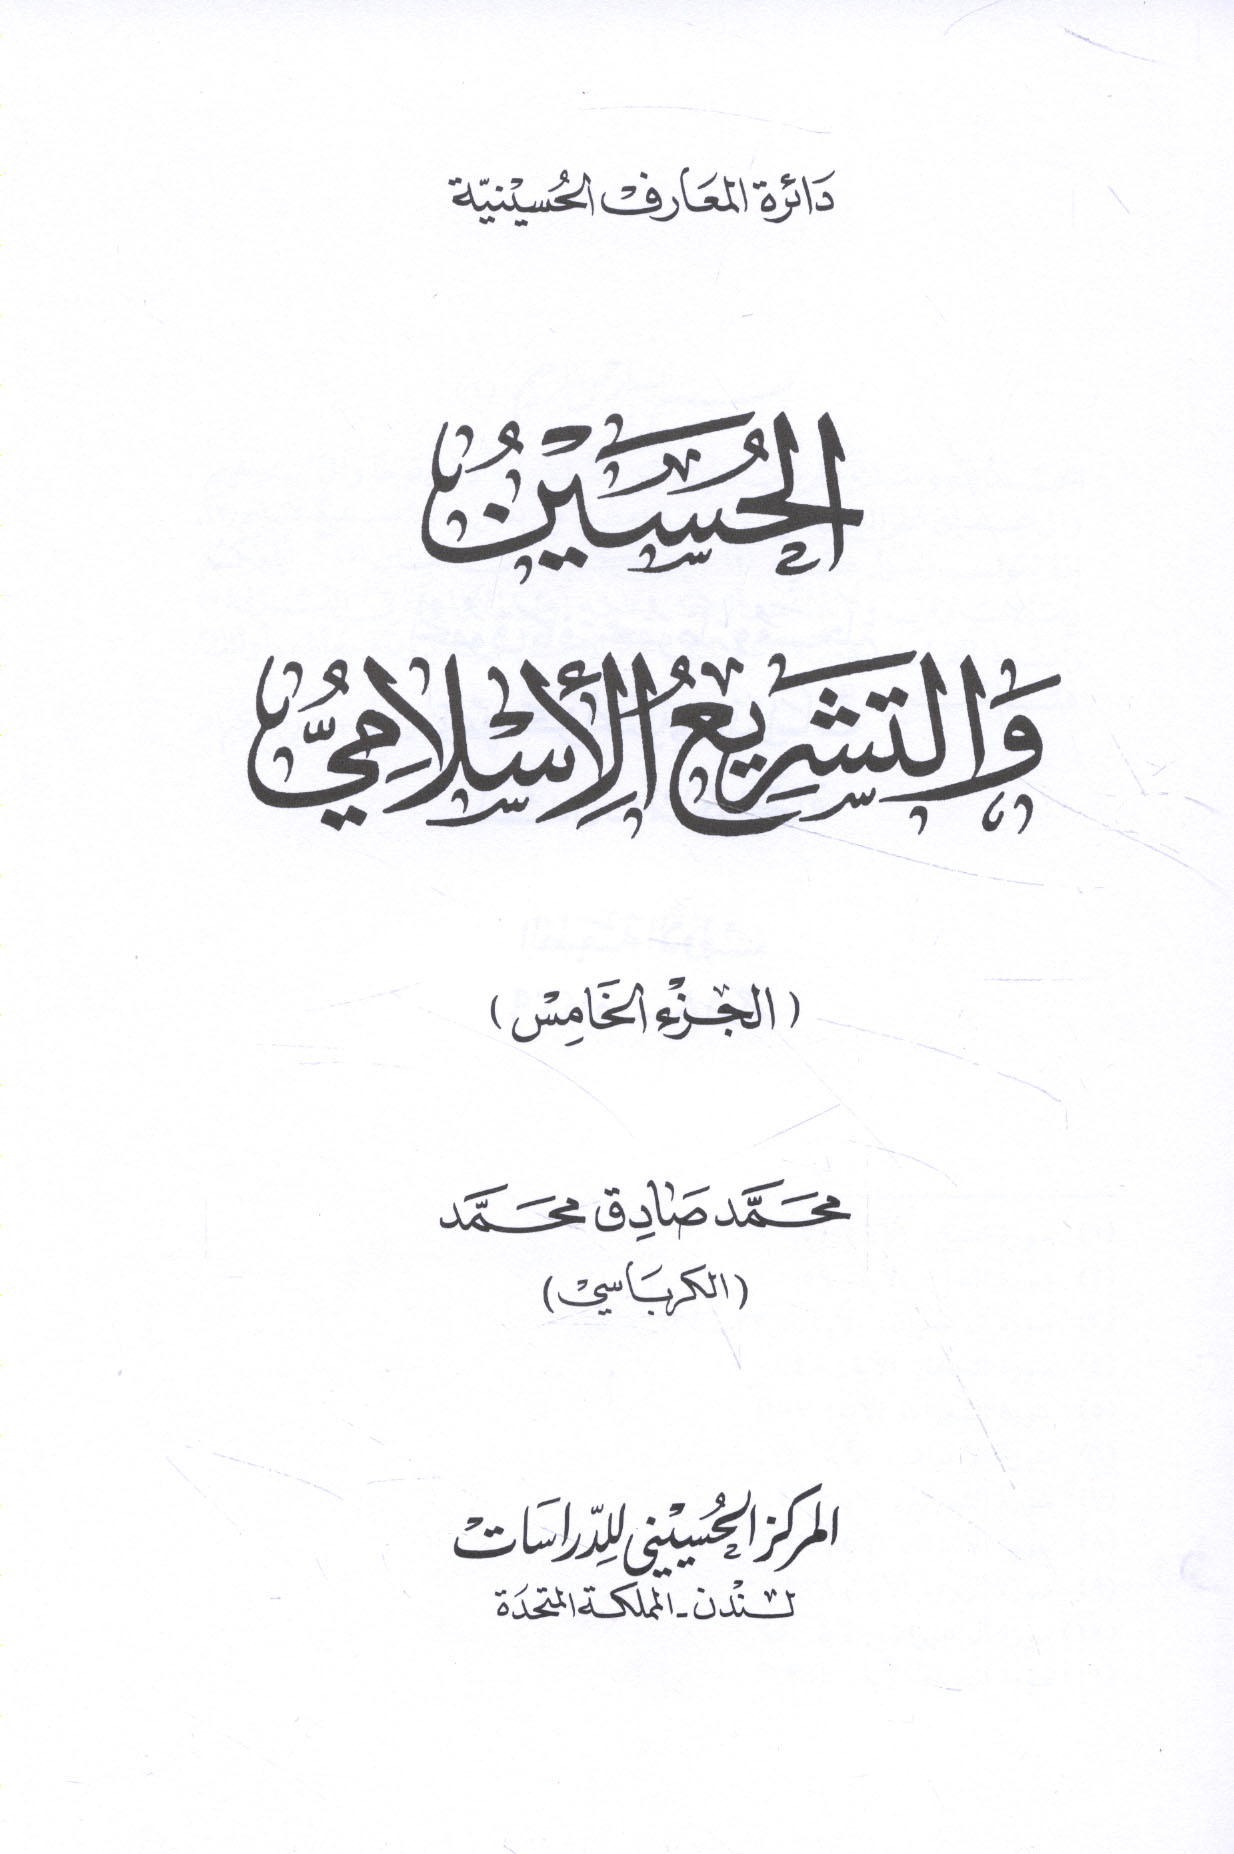 دَائرة المعَارف الحُسَينيّة
الحُسَيْنُ
وَالتشرِيعُ الإِسْلامِيُّ
(الجزْء الخَامِسْ)
محَمَّد صَادِق محَمَّد
(الكربَاسيْ)
المركز الحُسَيني للِدّراسَات
لندْن - المملكة المتحدَة